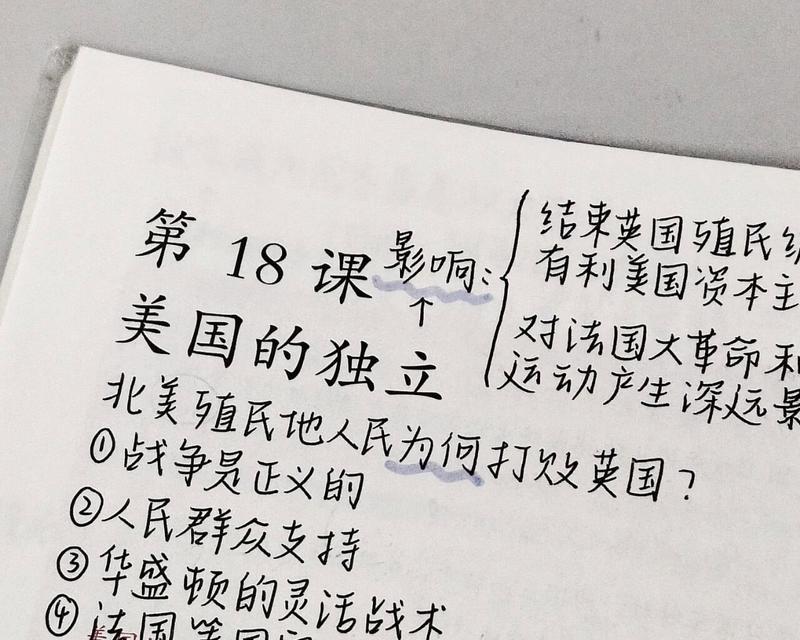 第 18 课
美国的独立
影响：
↑
结束英国殖民
有利美国资本主
对法国大革命和
运动产生深远影
北美殖民地人民为何打败英国？
①战争是正义的
②人民群众支持
③华盛顿的灵活战术
④法国等国
美国